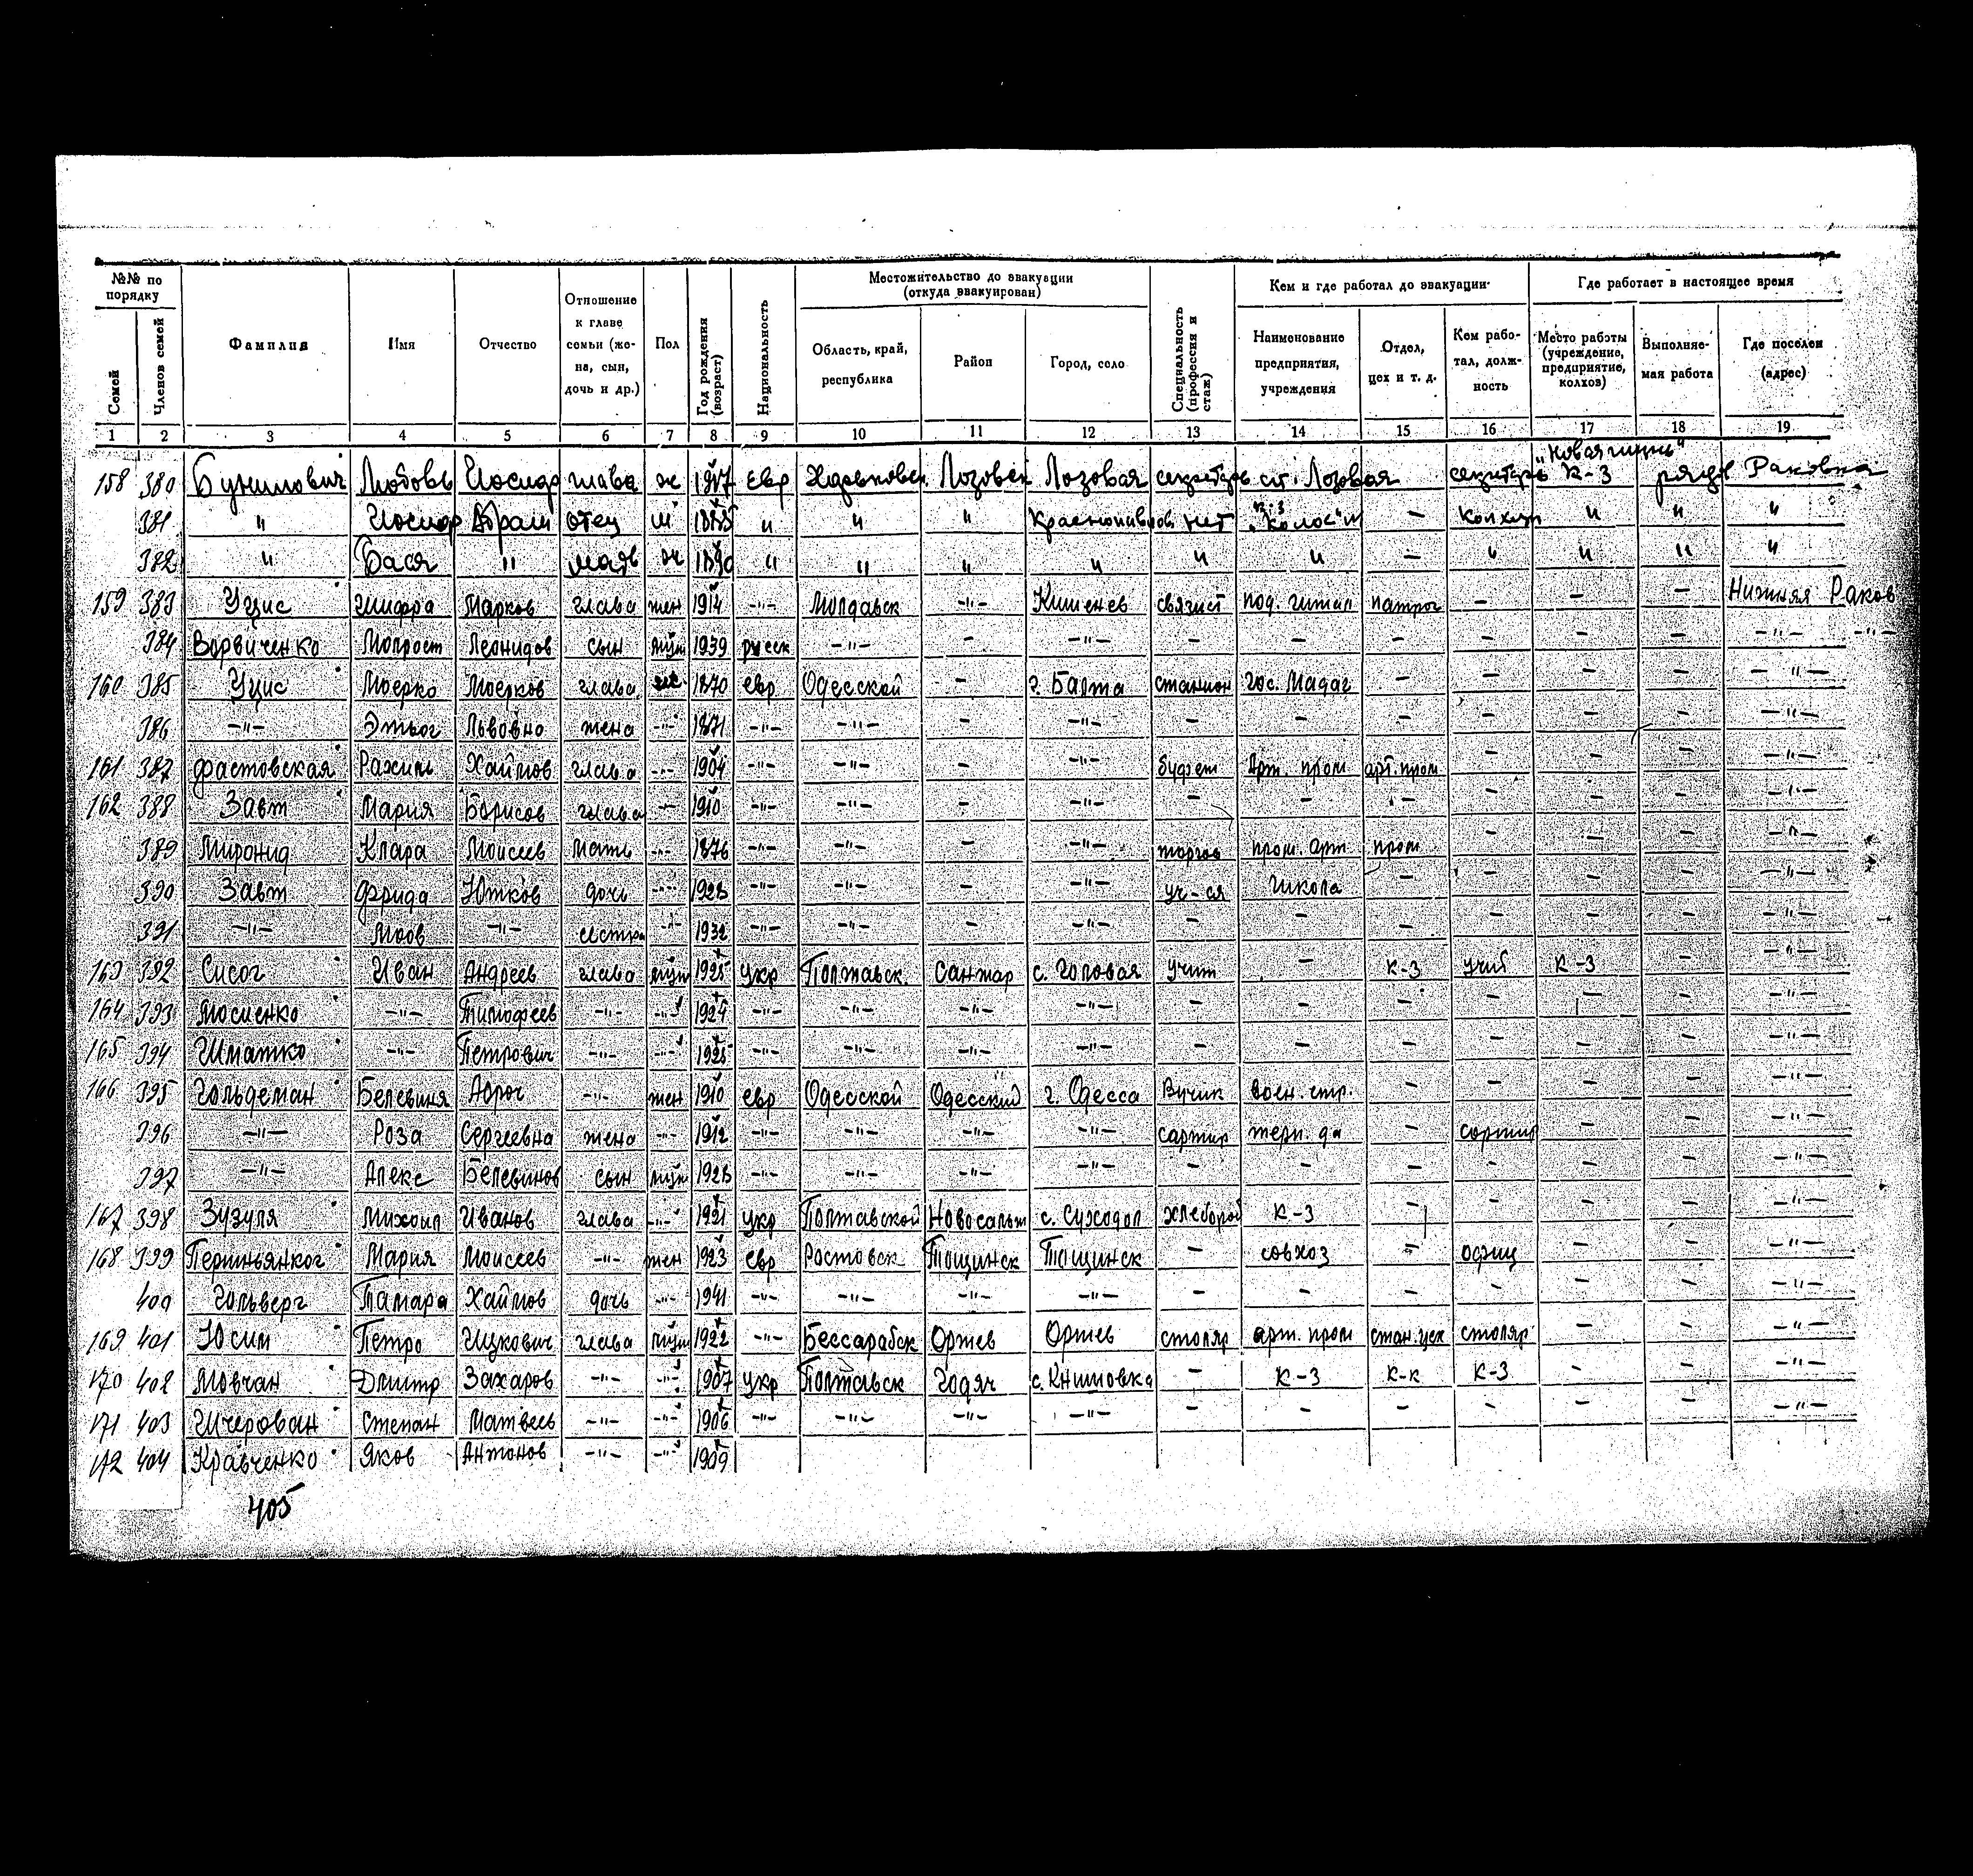 №№ по порядку
Семей
Членов семей
Фамилия
Имя
Отчество
Отношение к главе семьи (жена, сын, дочь и др.)
Пол
Год рождения (возраст)
Национальность
Местожительство до эвакуации (откуда эвакуирован)
Область, край, республика
Район
Город, село
Специальность (профессия и стаж)
Кем и где работал до эвакуации
Наименование предприятия, учреждения
Отдел, цех и т. д.
Кем работал, должность
Где работает в настоящее время
Место работы (учреждение, предприятие, колхоз)
Выполняемая работа
Где поселен (адрес)
1 2 3 4 5 6 7 8 9 10 11 12 13 14 15 16 17 18 19
158 380 Бунимович Любовь Иосиф глава ж 1917 евр Харьковск. Лозовск Лозовая ст. Лозовая "Новая жизнь" К-3 Раковка
381 " Иосиф Абрам отец м 1885 " " " нет к-3 "Колос" — " " "
382 " Бася " мать ж 1890 " " " " " " — " " " "
159 383 Уцис Шифра Марков глава жен 1914 -"- Молдавск -"- Кишенев связист — — — Нижняя Раков
384 Ворвиченко Леонидов сын муж 1939 русск -"- - -"- — — — — — — -"- -"-
160 385 Уцис Моерко Моерков глава 1870 евр Одесской - г. Балта — — — — -"-
386 -"- Львовно жена -"- 1871 -"- -"- - -"- — — — — — — -"-
161 387 Фастовская Рахиль Хаймов глава -"- 1904 -"- -"- — -"- Арт. пром арт. пром — — — -"-
162 388 Завт Мария Борисов глава -"- 1910 -"- -"- — -"- — — — — — — -"-
389 Клара Моисеев мать -"- 1876 -"- -"- — -"- торгов пром. арт пром — — — -"-
390 Завт Фрида Ютков дочь -"- 1923 -"- -"- — -"- уч-ся Школа — — — — -"-
391 -"- -"- сестра -"- 1932 -"- -"- — -"- — — — — — — -"-
163 392 Сисог Иван Андреев глава муж 1925 укр Полтавск. Санжар с. Головая учит — к-3 учит К-3 — -"-
164 393 Мосиенко -"- Тимофеев -"- -"- 1924 -"- -"- -"- -"- — — — — — — -"-
165 394 Шматко -"- Петрович -"- -"- 1925 -"- -"- -"- -"- — — — — — — -"-
166 395 Гольдеман Белевиня -"- жен 1910 евр Одесской Одесский г. Одесса воен. стр. — — — — -"-
396 -"- Роза Сергеевна жена -"- 1912 -"- -"- -"- -"- — — — -"-
397 -"- Алекс Белевинов сын муж 1923 -"- -"- -"- -"- — — — — — — -"-
167 398 Зузуля Михаил Иванов глава -"- 1921 укр Полтавской с. Суходол хлебороб К-3 — — — — -"-
168 399 Мария Моисеев -"- жен 1923 евр Ростовск Тощинск Тощинск — совхоз — — — -"-
400 Гольверг Тамара Хаймов дочь -"- 1941 -"- -"- -"- -"- — — — — — — -"-
169 401 Юсим Петро Ицкович глава муж 1922 -"- Бессарабск Оргев Оргев столяр арт. пром стан. цех столяр — — -"-
170 402 Мовчан Дмитр Захаров -"- -"- 1907 укр Полтавск Годяч — К-3 К-к К-3 — — -"-
171 403 Степан Матвеев -"- -"- 1906 -"- -"- -"- -"- — — — — — — -"-
172 404 Кравченко Яков Антонов -"- -"- 1909
405